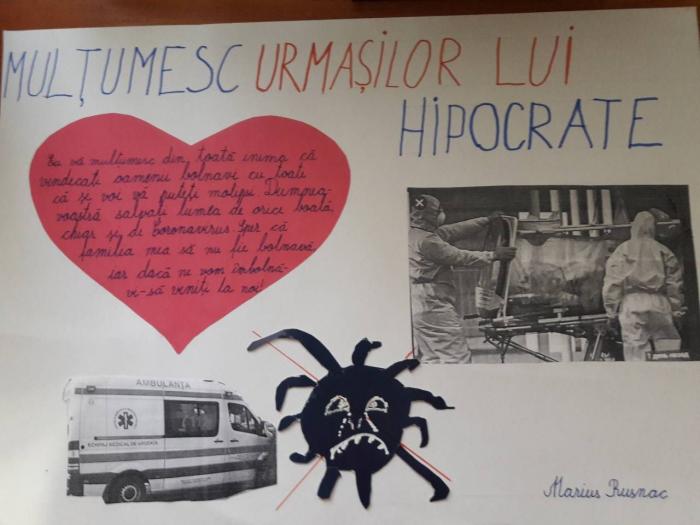 MULȚUMESC URMAȘILOR LUI
HIPOCRATE
Eu vă mulțumesc din toată inima că
vindecați oamenii bolnavi cu toate
că și voi vă puteți molipsi. Dumnea-
voastră salvați lumea de orice boală,
chiar și de Coronavirus. Sper că
familia mea să nu fie bolnavă,
iar dacă ne vom îmbolnă-
vi-să veniți la noi!
AMBULANȚA
ECHIPAJ MEDICAL DE URGENȚĂ
1 день назад
Marius Rusnac